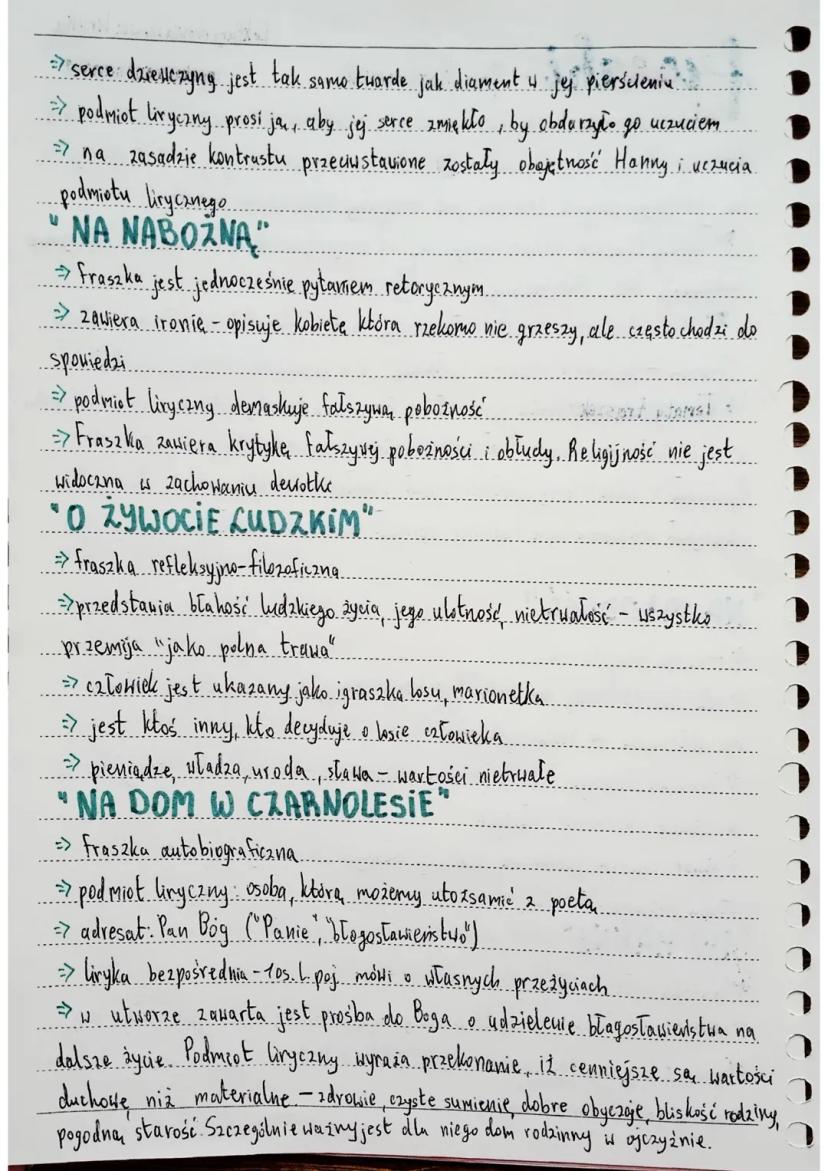 => serce dziewczyny jest tak samo twarde jak diament w jej pierścieniu
=> podmiot liryczny prosi ją, aby jej serce zmiękło, by obdarzyło go uczuciem
=> na zasadzie kontrastu przeciwstawione zostały obojętność Hanny i uczucia
podmiotu lirycznego
"NA NABOŻNĄ"
=> fraszka jest jednocześnie pytaniem retorycznym
=> zawiera ironię - opisuje kobietę która rzekomo nie grzeszy, ale często chodzi do
spowiedzi
=> podmiot liryczny demaskuje fałszywą pobożność
=> Fraszka zawiera krytykę fałszywej pobożności i obłudy. Religijność nie jest
widoczna w zachowaniu dewotki
"O ŻYWOCIE LUDZKIM"
=> fraszka refleksyjno-filozoficzna
=> przedstawia błahość ludzkiego życia, jego ulotność, nietrwałość - wszystko
przemija "jako polna trawa"
=> człowiek jest ukazany jako igraszka losu, marionetka
=> jest ktoś inny, kto decyduje o losie człowieka
=> pieniądze, władza, uroda, sława - wartości nietrwałe
"NA DOM W CZARNOLESIE"
=> fraszka autobiograficzna
=> podmiot liryczny: osoba, którą możemy utożsamić z poetą
=> adresat: Pan Bóg ("Panie", "błogosławieństwo")
=> liryka bezpośrednia - 1os. l. poj. mówi o własnych przeżyciach
=> w utworze zawarta jest prośba do Boga o udzielenie błagosławieństwa na
dalsze życie. Podmiot liryczny wyraża przekonanie, iż cenniejsze są wartości
duchowe, niż materialne - zdrowie, czyste sumienie, dobre obyczaje, bliskość rodziny,
pogodna starość. Szczególnie ważny jest dla niego dom rodzinny w ojczyźnie.